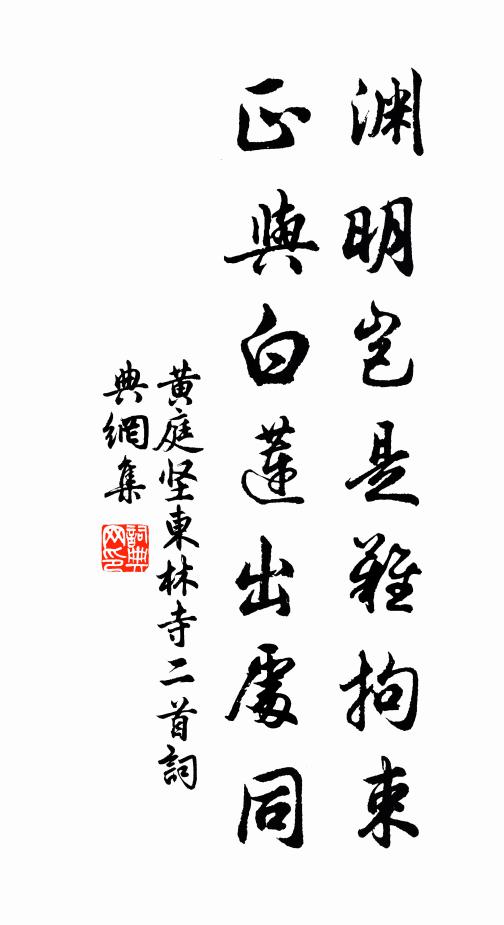 渊明岂是難拘束
正與白蓮出處同
黄庭坚東林寺二首詞
典網集
詞典网印